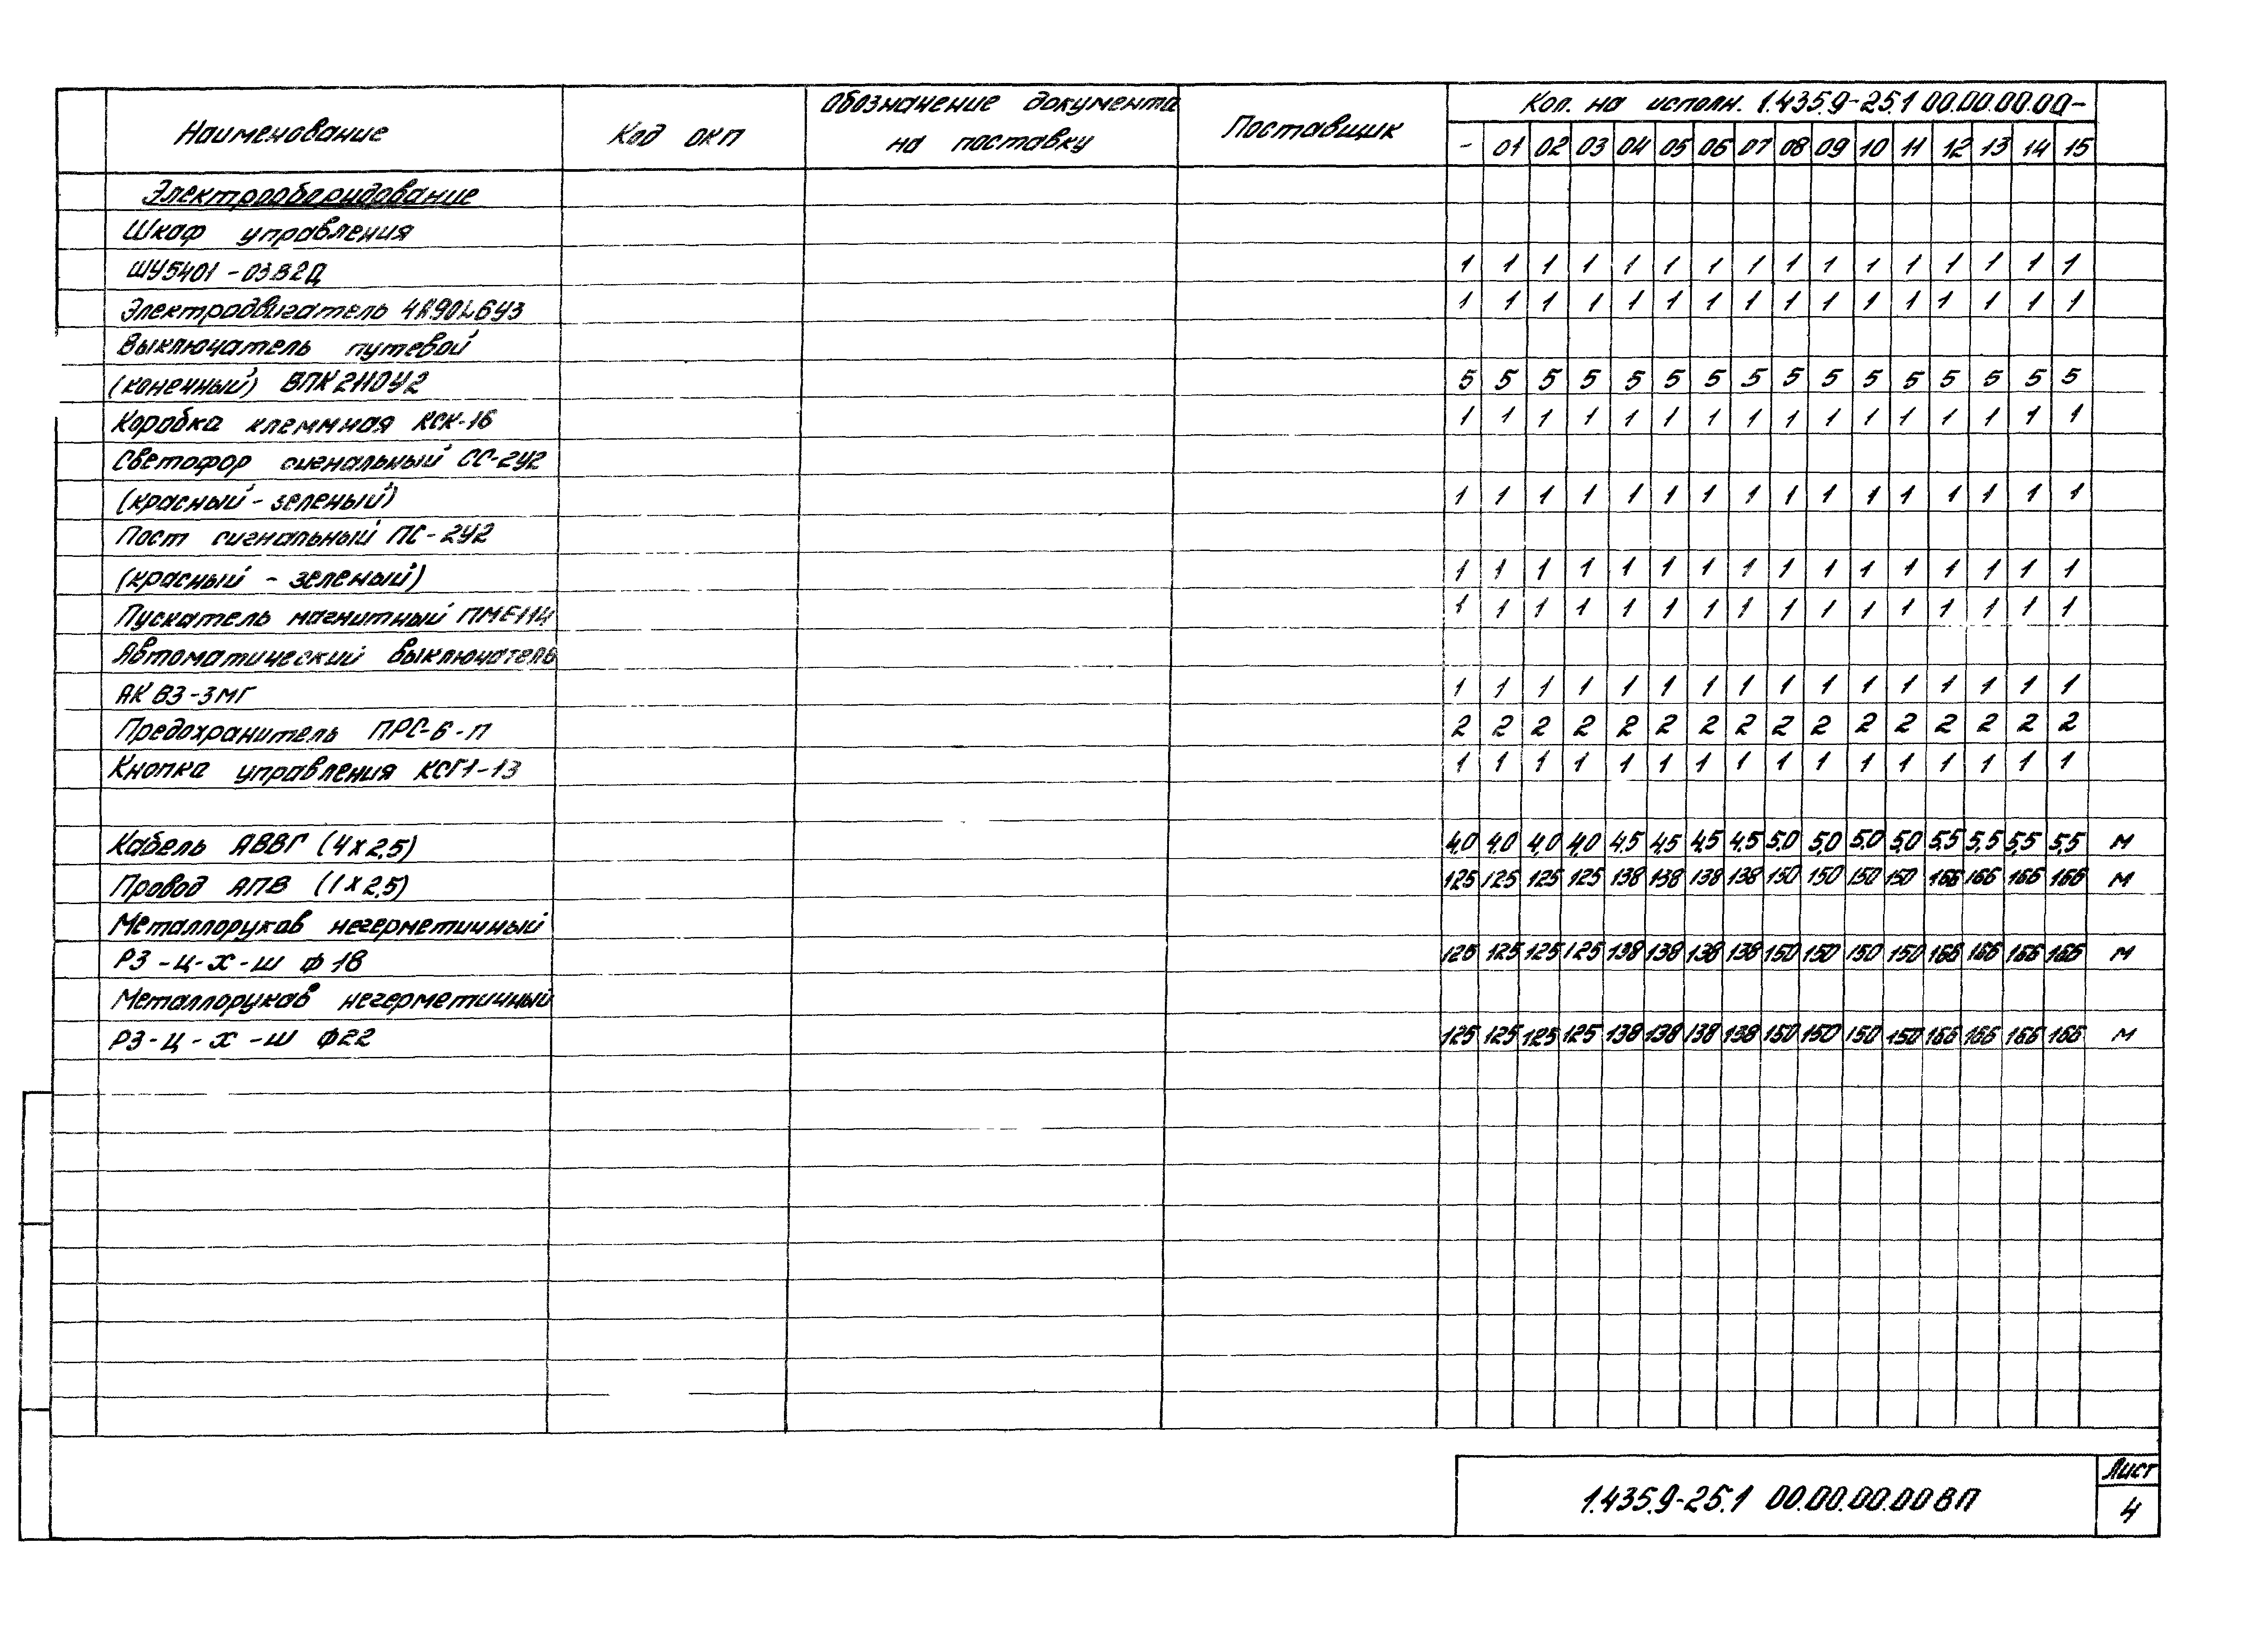 Наименование Код ОКП Обозначение документа на поставку Поставщик Кол. на исполн. 1.435.9-25.1 00.00.00.00-
- 01 02 03 04 05 06 07 08 09 10 11 12 13 14 15
Электрооборудование
Шкаф управления
ШУ5401-03В2Д 1 1 1 1 1 1 1 1 1 1 1 1 1 1 1 1
Электродвигатель 4А90L6У3 1 1 1 1 1 1 1 1 1 1 1 1 1 1 1 1
Выключатель путевой
(конечный) ВПК2110У2 5 5 5 5 5 5 5 5 5 5 5 5 5 5 5 5
Коробка клеммная КСК-16 1 1 1 1 1 1 1 1 1 1 1 1 1 1 1 1
Светофор сигнальный СС-2У2
(красный-зеленый) 1 1 1 1 1 1 1 1 1 1 1 1 1 1 1 1
Пост сигнальный ПС-2У2
(красный - зеленый) 1 1 1 1 1 1 1 1 1 1 1 1 1 1 1 1
Пускатель магнитный ПМЕ114 1 1 1 1 1 1 1 1 1 1 1 1 1 1 1 1
Автоматический выключатель
АК В3-3МГ 1 1 1 1 1 1 1 1 1 1 1 1 1 1 1 1
Предохранитель ПРС-6-П 2 2 2 2 2 2 2 2 2 2 2 2 2 2 2 2
Кнопка управления КСГ1-13 1 1 1 1 1 1 1 1 1 1 1 1 1 1 1 1
Кабель АВВГ (4х2,5) 4,0 4,0 4,0 4,0 4,5 4,5 4,5 4,5 5,0 5,0 5,0 5,0 5,5 5,5 5,5 5,5 м
Провод АПВ (1х2,5) 125 125 125 125 138 138 138 138 150 150 150 150 166 166 166 166 м
Металлорукав негерметичный
РЗ-Ц-Х-Ш Ф18 125 125 125 125 138 138 138 138 150 150 150 150 166 166 166 166 м
Металлорукав негерметичный
РЗ-Ц-Х-Ш Ф22 125 125 125 125 138 138 138 138 150 150 150 150 166 166 166 166 м
1.435.9-25.1 00.00.00.00 ВП
Лист
4